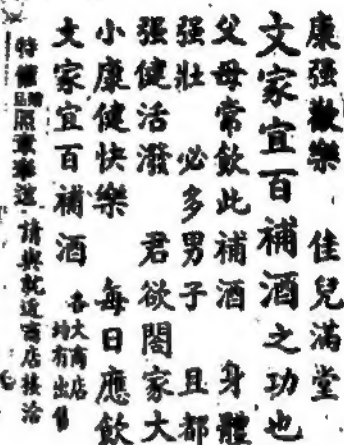 康强歡樂　佳兒滿堂
文家宜百補酒之功也
父母常飲此補酒　身體
强壯　必多男子　且都
强健活潑　君欲閤家大
小康健快樂　每日應飲
文家宜百補酒
各大商店
均有出售
照章奉送　請與就近商店接洽